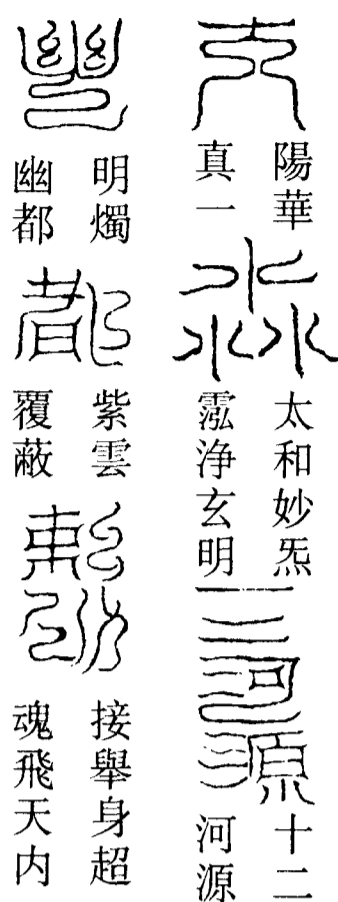 陽華
真一
太和妙炁
霐浄玄明
十二
河源
明燭
幽都
紫雲
覆蔽
接舉身超
魂飛天内